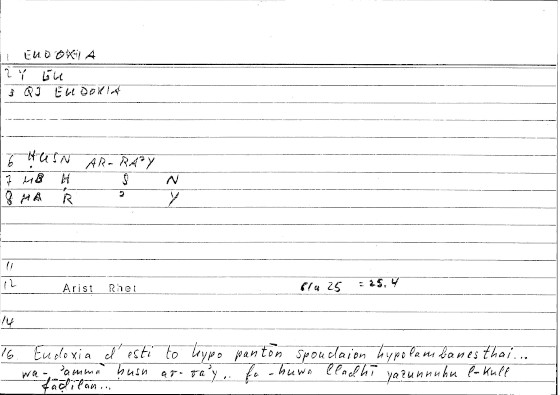 1 EUDOXIA
2 Y EU
3 QJ EUDOXIA
6 ḤUSN AR-RAʾY
7 MB Ḥ S N
8 MA R ʾ Y
11
12 Arist Rhet 61a 25 = 25.4
14
16 Eudoxia d'esti to hypo pantōn spoudaion hypolambanesthai...
wa-ʾammā ḥusn ar-raʾy.. fa-huwa lladhī yaẓunnuhu l-kull
fāḍilan...